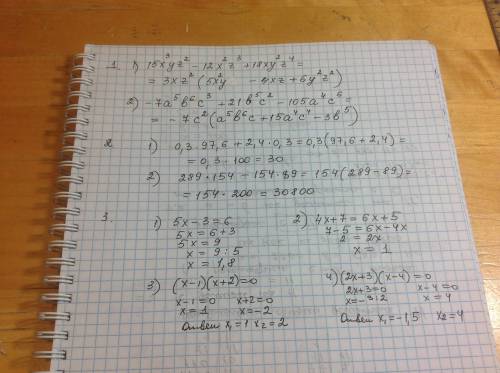 1. 1) 15x³yz² - 12x²z³ + 18xy²z⁴ =
= 3xz²(5x²y - 4xz + 6y²z²)
2) -7a⁵b⁶c³ + 21b⁵c² - 105a⁴c⁶ =
= -7c²(a⁵b⁶c + 15a⁴c⁴ - 3b⁵)
2. 1) 0,3·97,6 + 2,4·0,3 = 0,3(97,6 + 2,4) =
= 0,3·100 = 30
2) 289·154 - 154·89 = 154(289-89) =
= 154·200 = 30800
3. 1) 5x - 3 = 6
5x = 6+3
5x = 9
x = 9:5
x = 1,8
2) 4x+7 = 6x+5
7-5 = 6x-4x
2 = 2x
x = 1
3) (x-1)(x+2)=0
x-1=0 x+2=0
x=1 x=-2
Ответ x₁=1 x₂=2
4) (2x+3)(x-4)=0
2x+3=0 x-4=0
x=-3:2 x=4
Ответ x₁=-1,5 x₂=4